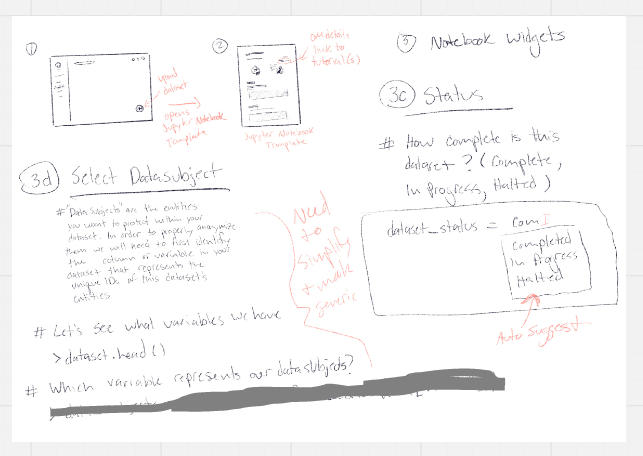 1
upload
dataset
opens
Jupyter Notebook
Template
2
link to
tutorial(s)
Jupyter Notebook
Template
3 Notebook widgets
3c Status
# How complete is this
dataset? (Complete,
In Progress, Halted)
dataset_status = Com
Completed
In Progress
Halted
Auto Suggest
3d Select DataSubject
# "Data Subjects" are the entities
you want to protect within your
dataset. In order to properly anonymize
them we will need to first identify
the column or variable in your
dataset that represents the
unique IDs of this dataset's
entities
Need
to
simplify
+ make
generic
# Let's see what variables we have
> dataset.head()
# Which variable represents our datasubjects?